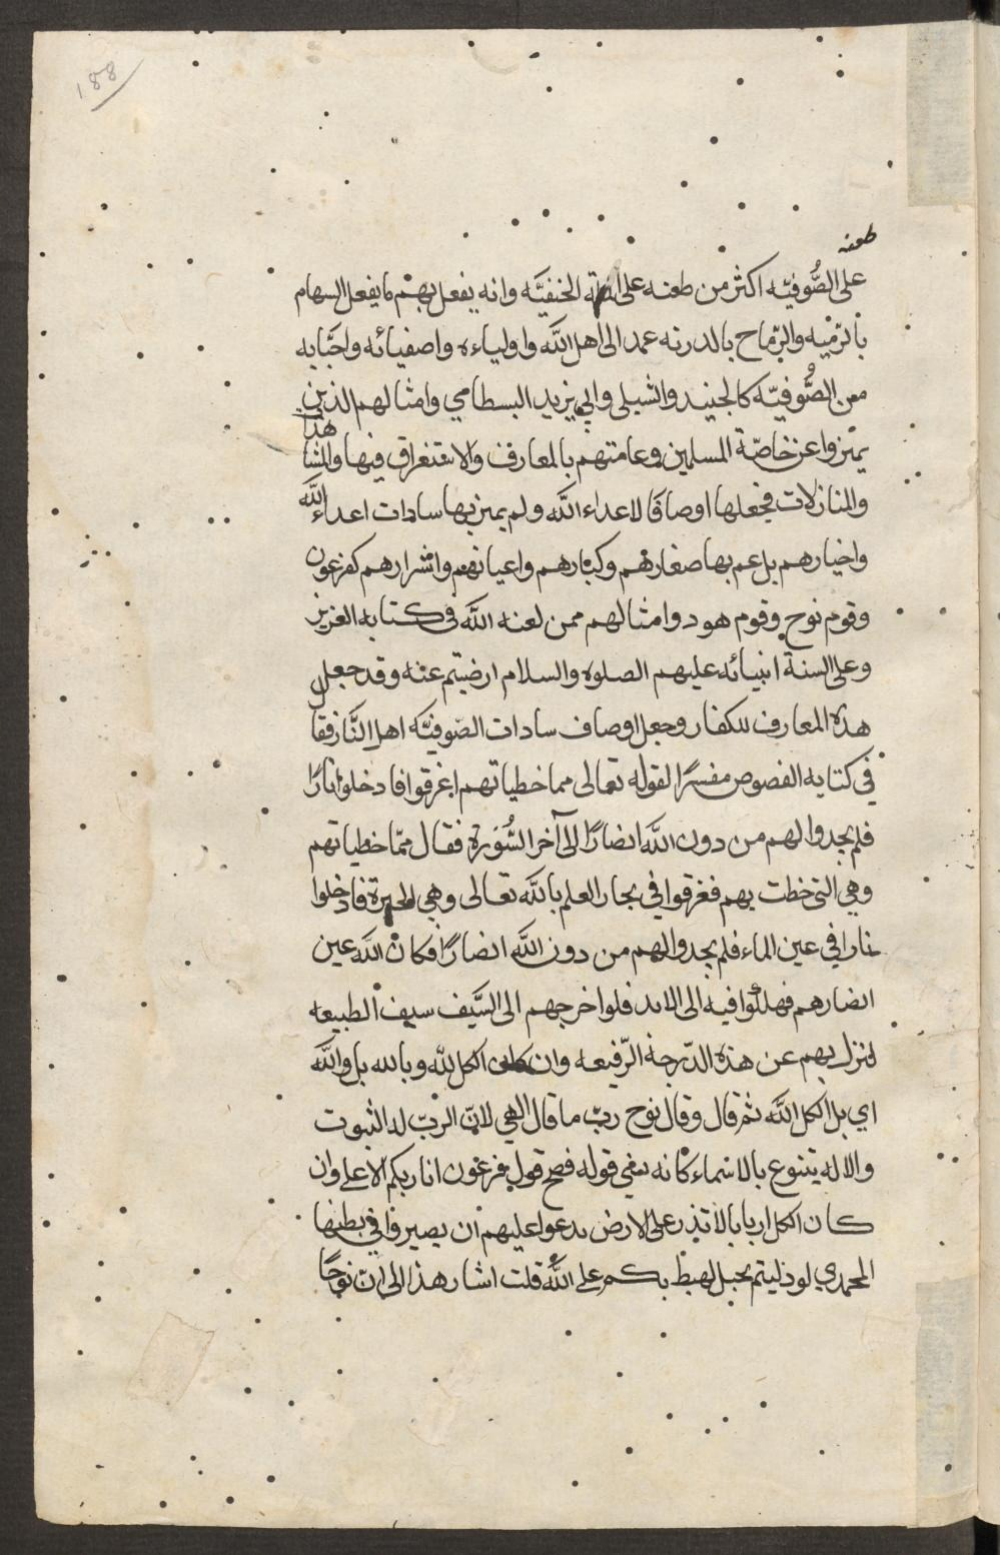 188
طعنه
على الصُّوفيّه اكثر من طعنه على الحنفيَّه وانه يفعل بهم ما يفعل السهام
بالرّميه والرّماح بالدريه عمد الى اهل اللّه واولياءه واصفيائه واحبَّايه
من الصُّوفيّه كالجنيد والشبلى وابي يزيد البسطامي وامثالهم الذين
تميّزوا عن خاصّة المسلمين وعامتهم بالمعارف والاستغراق فيها والمشا هذا
والمنازلات فجعلها اوصافا لاعداء اللّه ولم يميز بها سادات اعداء اللّه
واخيارهم بل عم بها صغارهم وكبارهم واعيانهم واشرارهم كفرعون
وقوم نوح وقوم هود وامثالهم ممن لعنه اللّه فى كتابه العزيز
وعلى السنة انبيائه عليهم الصلوه والسلام ارضيتم عنه وقد جعل
هذه المعارف للكفار وجعل اوصاف سادات الصّوفيَّه اهل النَّار فقا
في كتابه الفصوص مفسرًا لقوله تعالى مما خطياتهم اغرقوا فادخلوا نارًا
فلم يجدوا لهم من دون اللّه انصارًا الى آخر السُّورة فقال ممّا خطياتهم
وهي التى خطت بهم فغرقوا في بحار العلم باللّه تعالى وهي الحيرة فادخلوا
نارا في عين الماء فلم يجدوا لهم من دون اللّه انصارًا فكان اللّه عين
انصارهم فهلكوا فيه الى الابد فلو اخرجهم الى السَّيف سيف الطبيعه
لنزل بهم عن هذه الدّرجة الرّفيعه وان كان الكل للّه وبالله بل واللّه
اي بل الكل اللّه ثم قال وقال نوح ربّ ما قال الهي لانّ الربّ له الثبوت
والاله يتنوع بالاسماء كانه يعني قوله فصح قول فرعون انا ربكم الاعلى وان
كان الكل اربابا لا تذر على الارض يدعوا عليهم ان يصيروا في بطنها
المحمدي لو دليتم بحبل لهبط بكم على اللّه قلت اشار هذا الى ان نوحًا